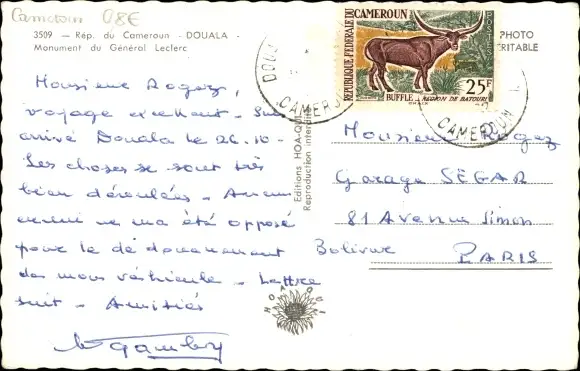 Cameroun 08€
3509 - Rép. du Cameroun - DOUALA -
Monument du Général Leclerc
PHOTO
VÉRITABLE
RÉPUBLIQUE FÉDÉRALE DU CAMEROUN
25F
BUFFLE - RÉGION DE BATOURI
DOUALA
CAMEROUN
CAMEROUN
Editions HOA-QUI
Reproduction interdite
Monsieur Rogez,
voyage excellent - Suis
arrivé Douala le 26.10 -
Les choses se sont très
bien déroulées - Aucun
ne m'a été opposé
pour le dédouanement
de mon véhicule - Lettre
suit - Amitiés
Monsieur Rogez
Garage SÉGAR
81 Avenue Simon
Bolivar PARIS
HOA QUI